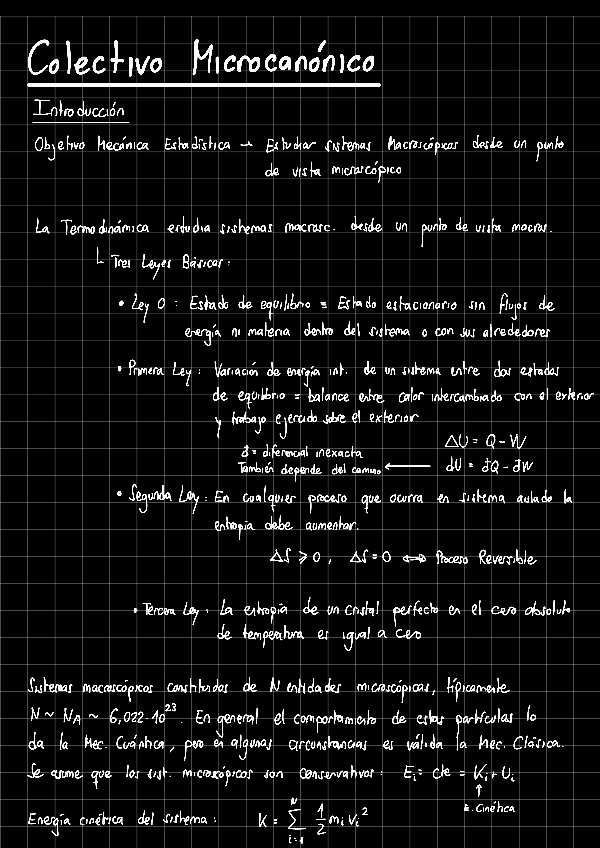 Colectivo Microcanónico
Introducción
Objetivo Mecánica Estadística → Estudiar sistemas Macroscópicos desde un punto
de vista microscópico
La Termodinámica estudia sistemas macrosc. desde un punto de vista macros.
Tres Leyes Básicas:
• Ley 0 : Estado de equilibrio ≡ Estado estacionario sin flujos de
energía ni materia dentro del sistema o con sus alrededores
• Primera Ley : Variación de energía int. de un sistema entre dos estados
de equilibrio = balance entre calor intercambiado con el exterior
y trabajo ejercido sobre el exterior
ΔU = Q - W
đ = diferencial inexacta
También depende del camino ← dU = đQ - đW
• Segunda Ley : En cualquier proceso que ocurra en sistema aislado la
entropía debe aumentar.
ΔS ⩾ 0 , ΔS = 0 ⟺ Proceso Reversible
• Tercera Ley : La entropía de un cristal perfecto en el cero absoluto
de temperatura es igual a cero
Sistemas macroscópicos constituidos de N entidades microscópicas, típicamente
N ~ N_A ~ 6,022·10^23. En general el comportamiento de estas partículas lo
da la Mec. Cuántica, pero en algunas circunstancias es válida la Mec. Clásica.
Se asume que los sist. microscópicos son conservativos : E_i = cte = K_i + U_i
↑
E. Cinética
Energía cinética del sistema : K = ∑_{i=1}^{N} 1/2 m_i v_i^2